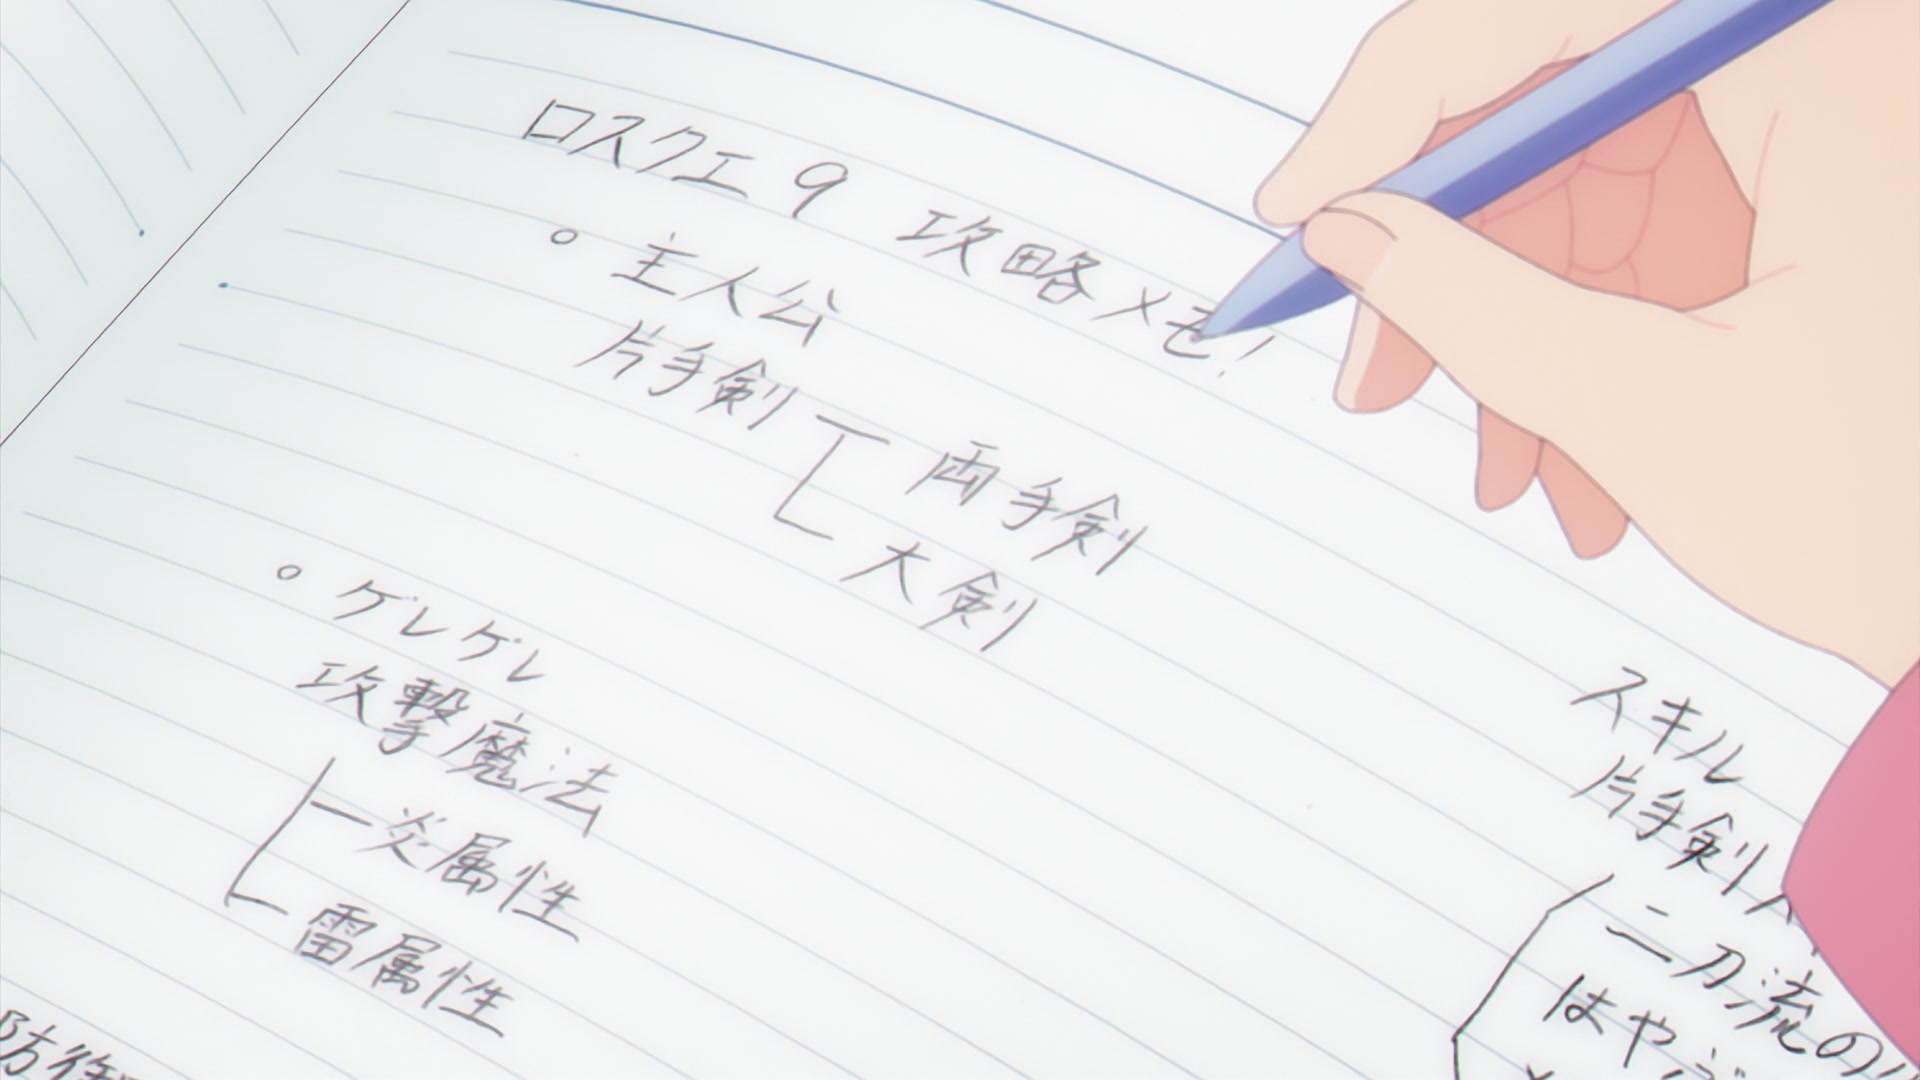 ロスクエ9 攻略メモ!
○ 主人公
片手剣
両手剣
大剣
○ ゲレゲレ
攻撃魔法
炎属性
雷属性
スキル
片手剣
二刀流の
はや
防御